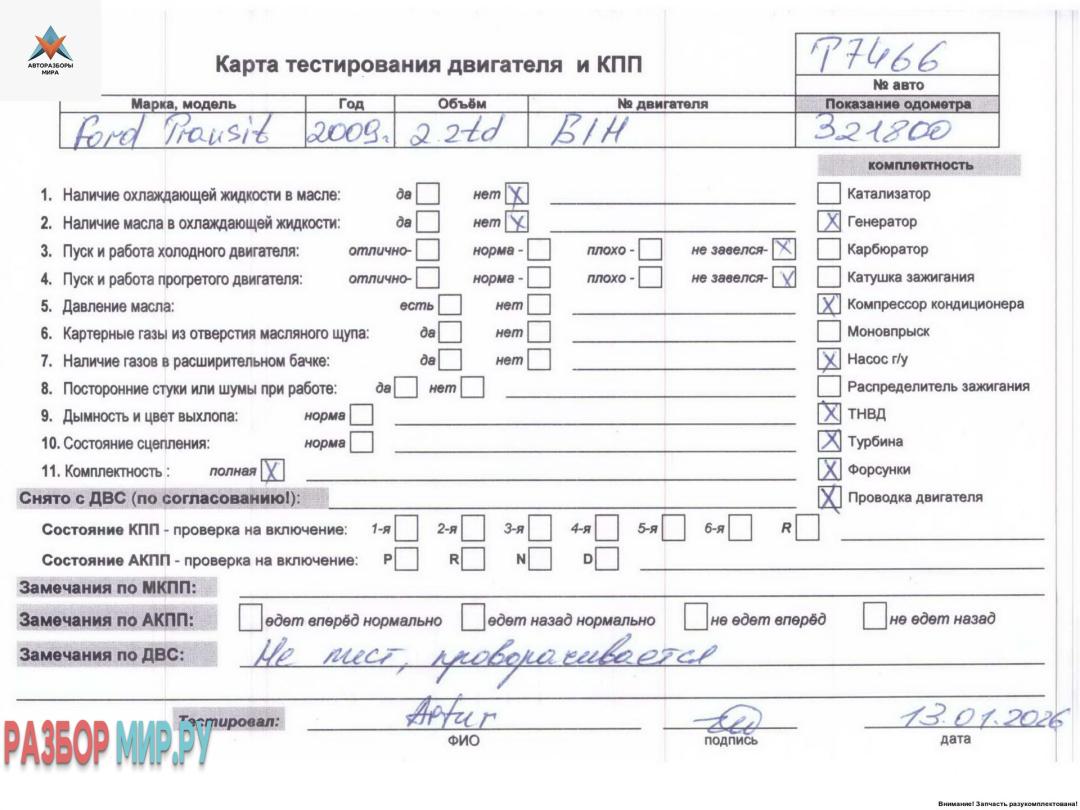 АВТОРАЗБОРЫ
МИРА
Карта тестирования двигателя и КПП
T7466
№ авто
Марка, модель Год Объём № двигателя Показание одометра
Ford Transit 2009г. 2.2td B/H 321800
комплектность
1. Наличие охлаждающей жидкости в масле: да нет X
Катализатор
2. Наличие масла в охлаждающей жидкости: да нет X
X Генератор
3. Пуск и работа холодного двигателя: отлично- норма - плохо - не завелся- X
Карбюратор
4. Пуск и работа прогретого двигателя: отлично- норма - плохо - не завелся- X
Катушка зажигания
5. Давление масла: есть нет
X Компрессор кондиционера
6. Картерные газы из отверстия масляного щупа: да нет
Моновпрыск
7. Наличие газов в расширительном бачке: да нет
X Насос г/у
8. Посторонние стуки или шумы при работе: да нет
Распределитель зажигания
9. Дымность и цвет выхлопа: норма
X ТНВД
10. Состояние сцепления: норма
X Турбина
11. Комплектность : полная X
X Форсунки
Снято с ДВС (по согласованию!):
X Проводка двигателя
Состояние КПП - проверка на включение: 1-я 2-я 3-я 4-я 5-я 6-я R
Состояние АКПП - проверка на включение: P R N D
Замечания по МКПП:
Замечания по АКПП: едет вперёд нормально едет назад нормально не едет вперёд не едет назад
Замечания по ДВС: Не тест, проворачивается
Тестировал: Artur 13.01.2026
ФИО подпись дата
РАЗБОР МИР.РУ
Внимание! Запчасть разукомплектована!